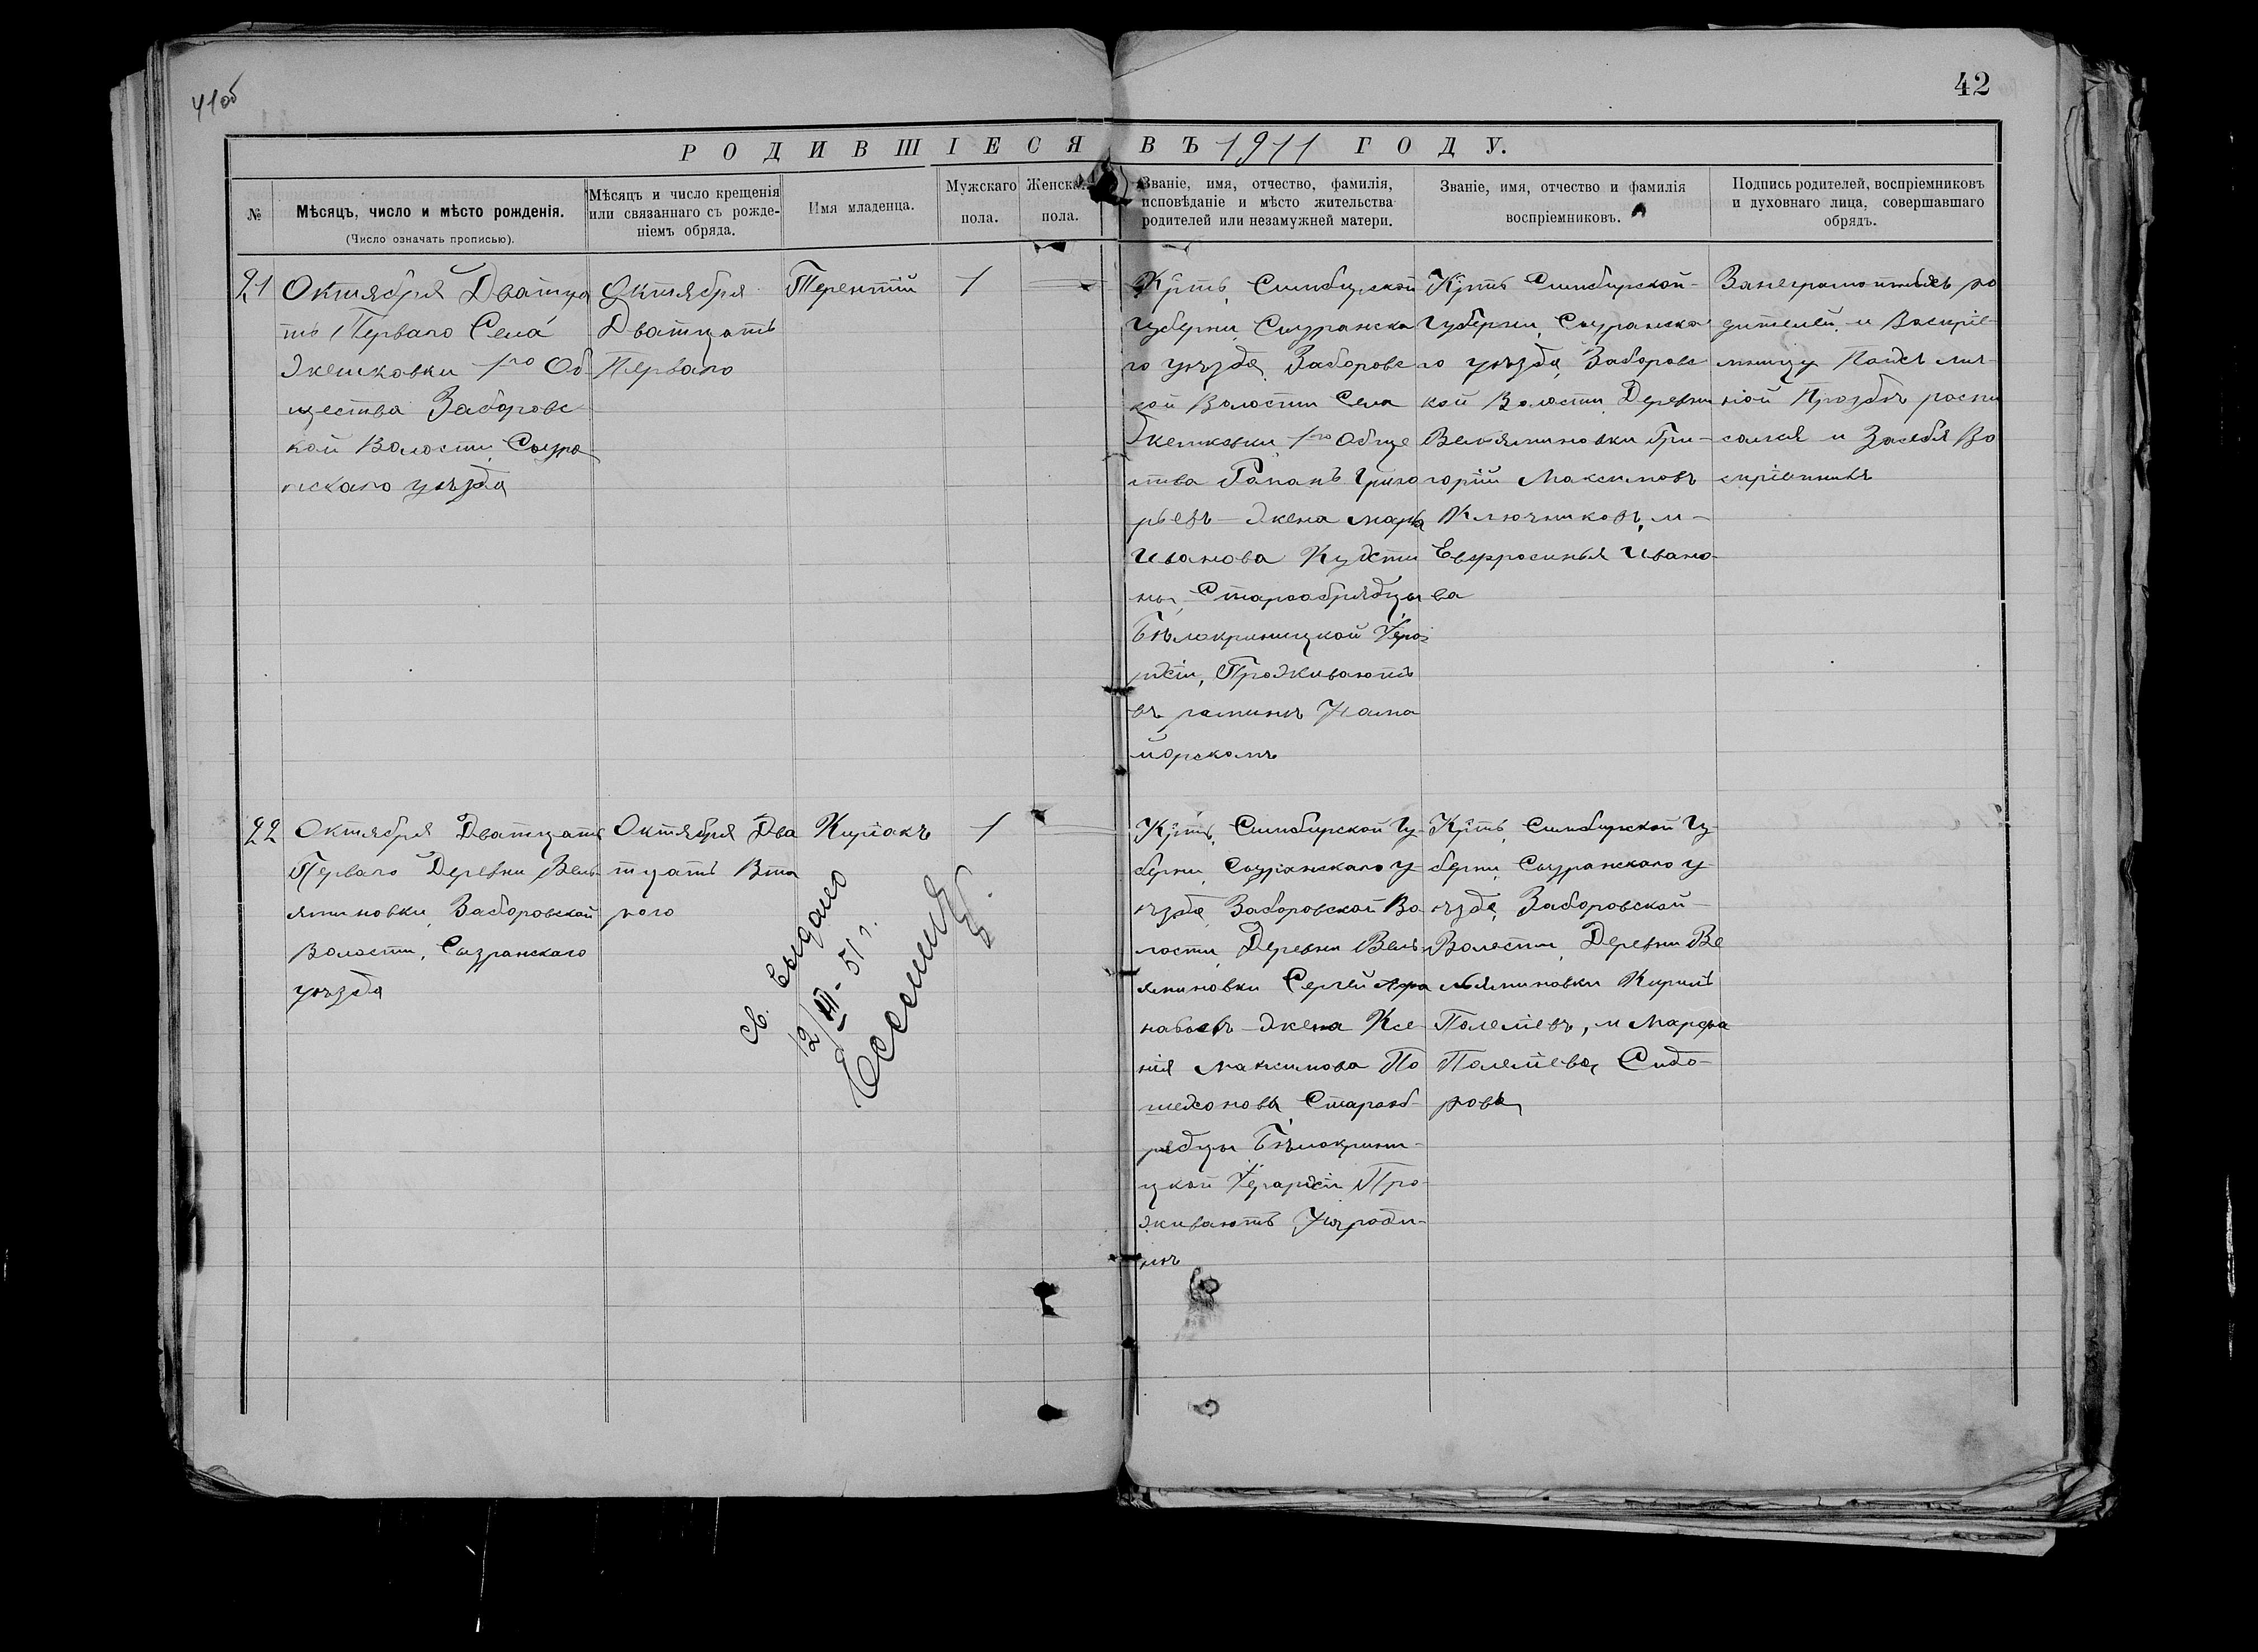 41об
42
РОДИВШІЕСЯ ВЪ 1911 ГОДУ.
№
Мѣсяцъ, число и мѣсто рожденія.
(Число означать прописью).
Мѣсяцъ и число крещенія
или связаннаго съ рожде-
ніемъ обряда.
Имя младенца.
Мужскаго
пола.
Женска
пола.
Званіе, имя, отчество, фамилія,
исповѣданіе и мѣсто жительства
родителей или незамужней матери.
Званіе, имя, отчество и фамилія
воспріемниковъ.
Подпись родителей, воспріемниковъ
и духовнаго лица, совершавшаго
обрядъ.
21
Октября Дватца
ть Перваго Села
Жемковки 1го Об
щества Заборовс
кой Волости, Сызра
нскаго уѣзда
Октября
Дватцать
Перваго
Терентій
1
Крть, Симбирской
Губерни, Сызранска
го уѣзда, Заборовс
кой Волости Села
Жемковки 1го Обще
ства Раманъ Григо
рьевъ жена Марья
Иванова
Старообрядцы
Бѣлокриницкой
Проживаютъ
въ
Крть Симбирской-
Губерни, Сызранско
го уѣзда, Заборовс
кой Волости, Деревни
Вельяминовки Гри-
горій Максимовъ
Ключниковъ, и-
Евфросинья Ивано-
ва
Занеграмотныхъ ро
дителей и Воспріе-
мницу
ной Прозбѣ роспи
сался и Засебя Во
спріемникъ
22
Октября Дватцать
Перваго Деревни Вель-
яминовки, Заборовской
Волости, Сызранскаго
уѣзда
Октября Два
тцать Вта
рого
Киріакъ
1
св. выдано
12/III-51г.
Крть, Симбирской Гу-
берни, Сызранскаго у-
ѣзда, Заборовской Во-
лости, Деревни Вель-
яминовки Сергѣй Афа
насьевъ жена Ксе-
нія Максимова По
шехоновы, Старооб-
редцы Бѣлокрини-
цкой Іерархіи Про-
живаютъ Народи-
нѣ
Крть, Симбирской Гу-
берни, Сызранскаго у-
ѣзда, Заборовской-
Волости, Деревни Ве
льяминовки Кирилъ
и Марфа
Сидо-
рова